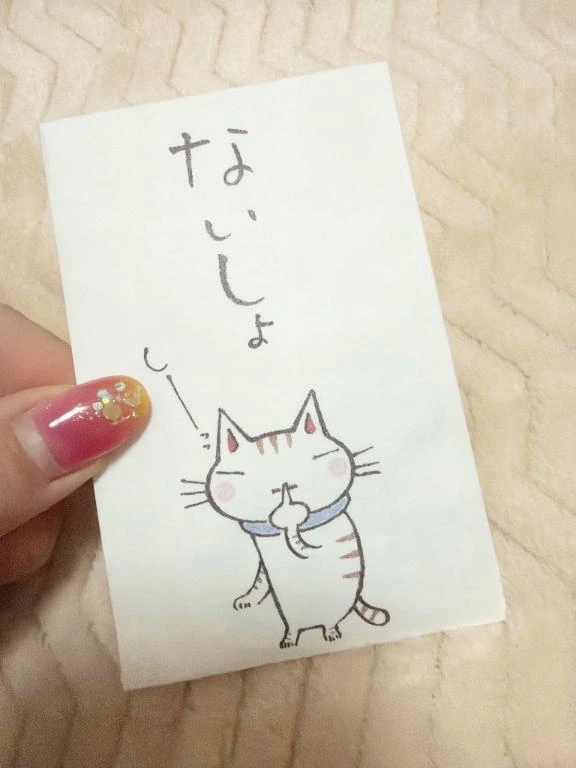 ないしょ
しーっ